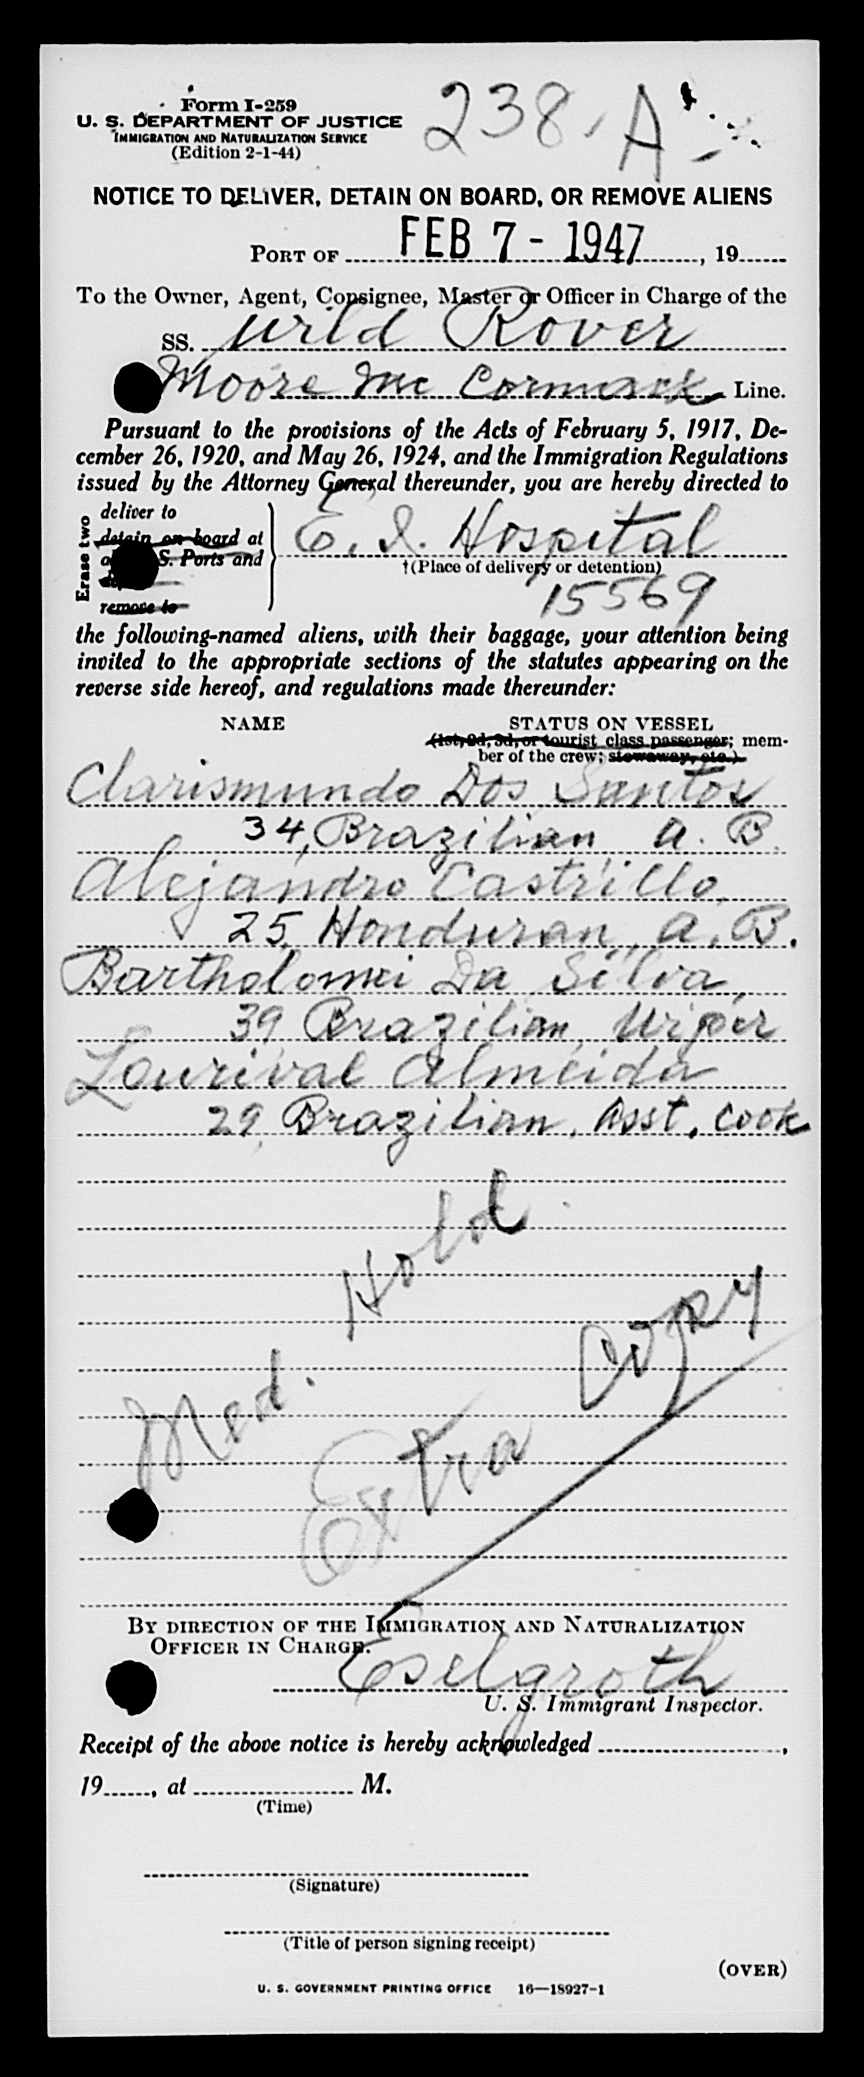 Form I-259
238-A
U. S. DEPARTMENT OF JUSTICE
IMMIGRATION AND NATURALIZATION SERVICE
(Edition 2-1-44)
NOTICE TO DELIVER, DETAIN ON BOARD, OR REMOVE ALIENS
PORT OF FEB 7 - 1947, 19
To the Owner, Agent, Consignee, Master or Officer in Charge of the
SS. Wild Rover
Moore Mc Cormack Line.
Pursuant to the provisions of the Acts of February 5, 1917, De-
cember 26, 1920, and May 26, 1924, and the Immigration Regulations
issued by the Attorney General thereunder, you are hereby directed to
Erase two
deliver to
detain on board at
S. Ports and
remove to
E. I. Hospital
†(Place of delivery or detention)
15569
the following-named aliens, with their baggage, your attention being
invited to the appropriate sections of the statutes appearing on the
reverse side hereof, and regulations made thereunder:
NAME STATUS ON VESSEL
(1st, 2d, 3d, or tourist class passenger; mem-
ber of the crew; stowaway, etc.)
Clarismundo Dos Santos
34, Brazilian A. B.
Alejandro Castrillo,
25, Honduran, A. B.
Bartholomei Da Silva,
39 Brazilian, Wiper
Lourival Almeida
29, Brazilian, Asst. Cook
Med. Hold
Extra Copy
BY DIRECTION OF THE IMMIGRATION AND NATURALIZATION
OFFICER IN CHARGE.
Eselgroth
U. S. Immigrant Inspector.
Receipt of the above notice is hereby acknowledged ,
19 , at M.
(Time)
(Signature)
(Title of person signing receipt)
(OVER)
U. S. GOVERNMENT PRINTING OFFICE 16—18927-1